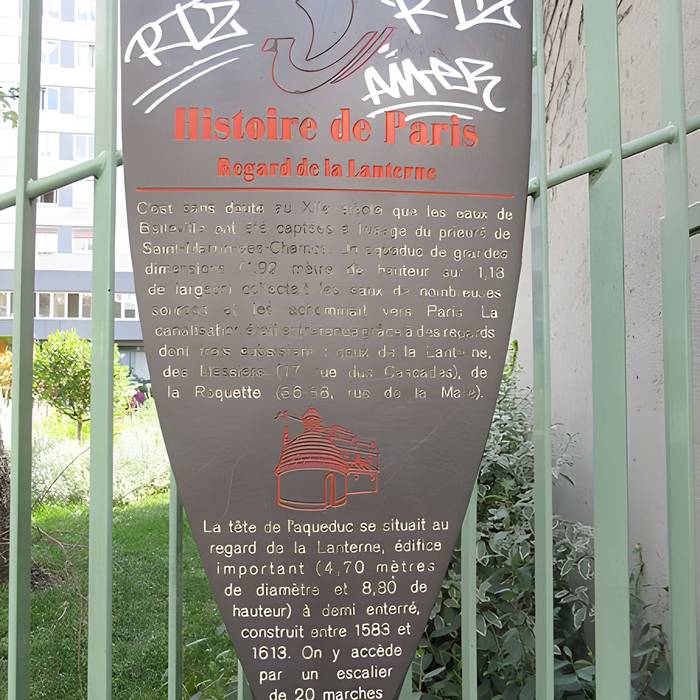 RTZ RTZ
AMER
Histoire de Paris
Regard de la Lanterne
C'est sans doute au XIIe siècle que les eaux de
Belleville ont été captées à l'usage du prieuré de
Saint-Martin-des-Champs. Un aqueduc de grandes
dimensions (1,92 mètre de hauteur sur 1,18
de largeur) collectait les eaux de nombreuses
sources et les acheminait vers Paris. La
canalisation était entretenue grâce à des regards
dont trois subsistent : ceux de la Lanterne,
des Messiers (17, rue des Cascades), de
la Roquette (36-38, rue de la Mare).
La tête de l'aqueduc se situait au
regard de la Lanterne, édifice
important (4,70 mètres
de diamètre et 8,80 de
hauteur) à demi enterré,
construit entre 1583 et
1613. On y accède
par un escalier
de 20 marches